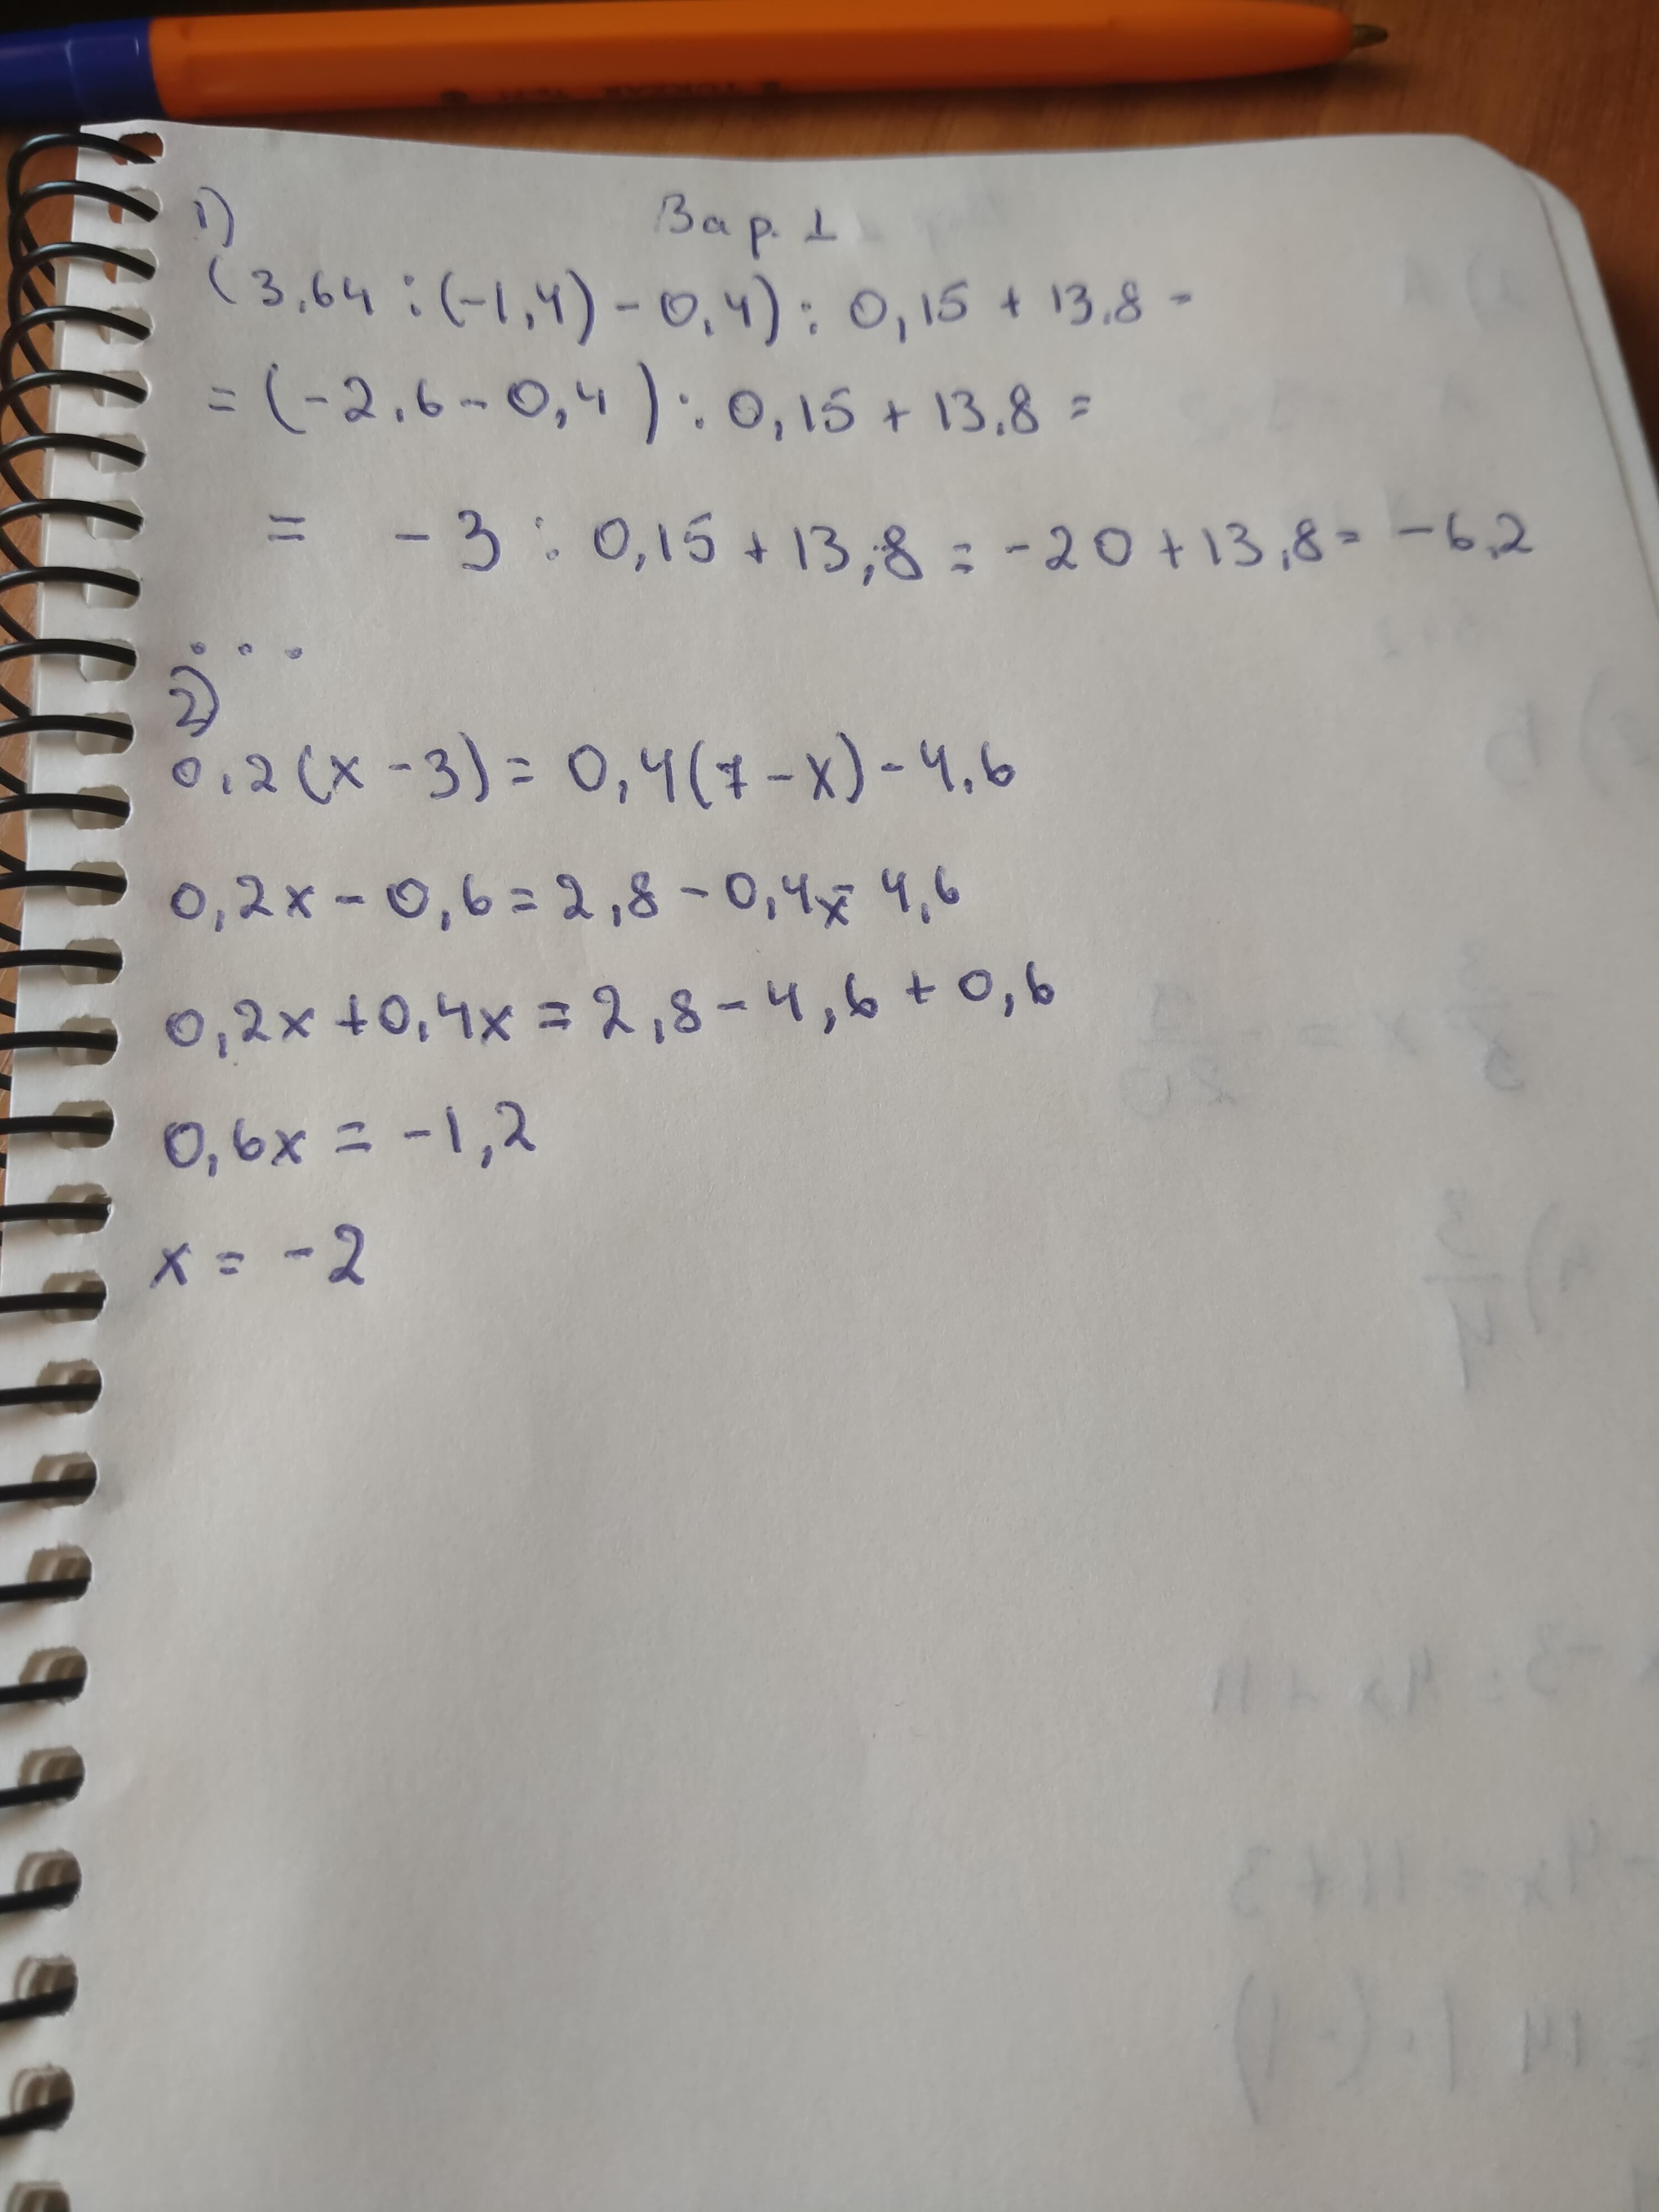 1)
Вар. 1
(3,64 : (-1,4) - 0,4) : 0,15 + 13,8 =
= (-2,6 - 0,4) : 0,15 + 13,8 =
= -3 : 0,15 + 13,8 = -20 + 13,8 = -6,2
...
2)
0,2(x - 3) = 0,4(7 - x) - 4,6
0,2x - 0,6 = 2,8 - 0,4x - 4,6
0,2x + 0,4x = 2,8 - 4,6 + 0,6
0,6x = -1,2
x = -2